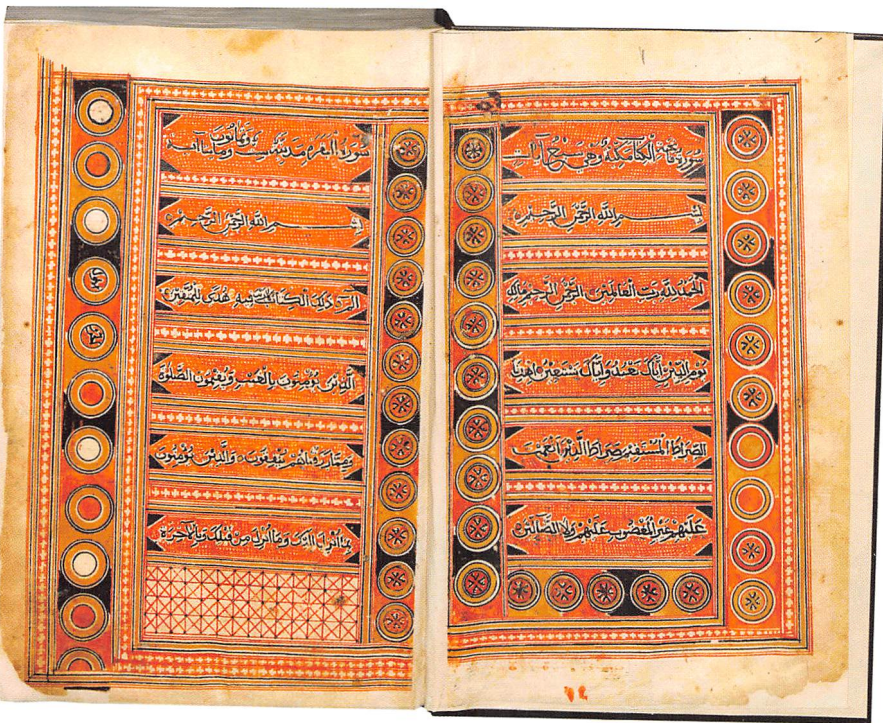 سورة فاتحة الكتاب مكية وهي سبع آيات
بسم الله الرحمن الرحيم
الحمد لله رب العالمين الرحمن الرحيم مالك
يوم الدين اياك نعبد واياك نستعين اهدنا
الصراط المستقيم صراط الذين انعمت
عليهم غير المغضوب عليهم ولا الضالين
سورة البقرة مدنية ست وثمانون ومايتا آية
بسم الله الرحمن الرحيم
الم ذلك الكتاب لا ريب فيه هدى للمتقين
الذين يؤمنون بالغيب ويقيمون الصلوة
ومما رزقناهم ينفقون والذين يؤمنون
بما انزل اليك وما انزل من قبلك وبالاخرة